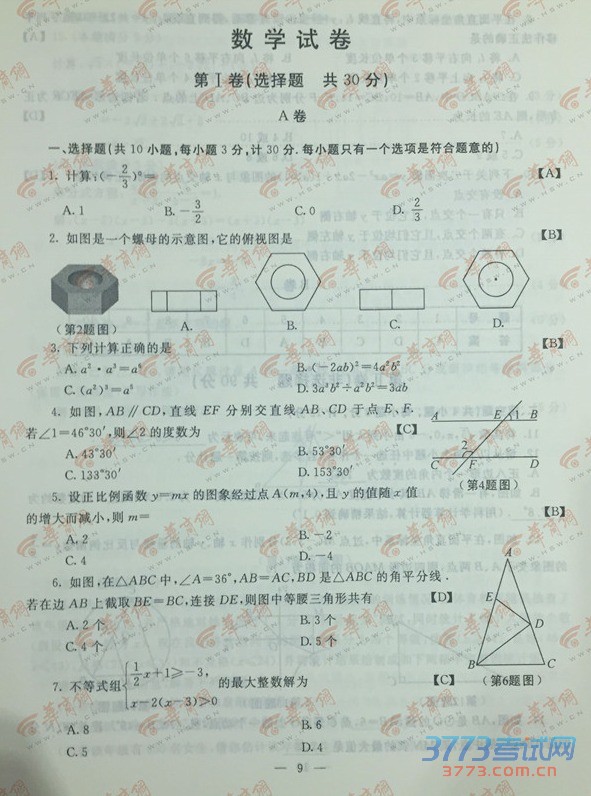 数 学 试 卷
第Ⅰ卷(选择题 共 30 分)
A 卷
一、选择题(共 10 小题,每小题 3 分,计 30 分.每小题只有一个选项是符合题意的)
1. 计算:(-2/3)⁰= 【A】
A. 1 B. -3/2 C. 0 D. 2/3
2. 如图是一个螺母的示意图,它的俯视图是 【B】
(第2题图) A. B. C. D.
3. 下列计算正确的是 【B】
A. a²·a³=a⁶ B. (-2ab)²=4a²b²
C. (a²)³=a⁵ D. 3a³b²÷a²b²=3ab
4. 如图,AB∥CD,直线 EF 分别交直线 AB、CD 于点 E、F.
若∠1=46°30′,则∠2 的度数为 【C】
A. 43°30′ B. 53°30′
C. 133°30′ D. 153°30′
A E 1 B
2
C F D
(第4题图)
5. 设正比例函数 y=mx 的图象经过点 A(m,4),且 y 的值随 x 值
的增大而减小,则 m= 【B】
A. 2 B. -2
C. 4 D. -4
6. 如图,在△ABC 中,∠A=36°,AB=AC,BD 是△ABC 的角平分线.
若在边 AB 上截取 BE=BC,连接 DE,则图中等腰三角形共有 【D】
A. 2 个 B. 3 个
C. 4 个 D. 5 个
A
E
D
B C
(第6题图)
7. 不等式组{1/2x+1≥-3, x-2(x-3)>0 的最大整数解为 【C】
A. 8 B. 6
C. 5 D. 4
— 9 —
3773考试网
3773.com.cn
华商网